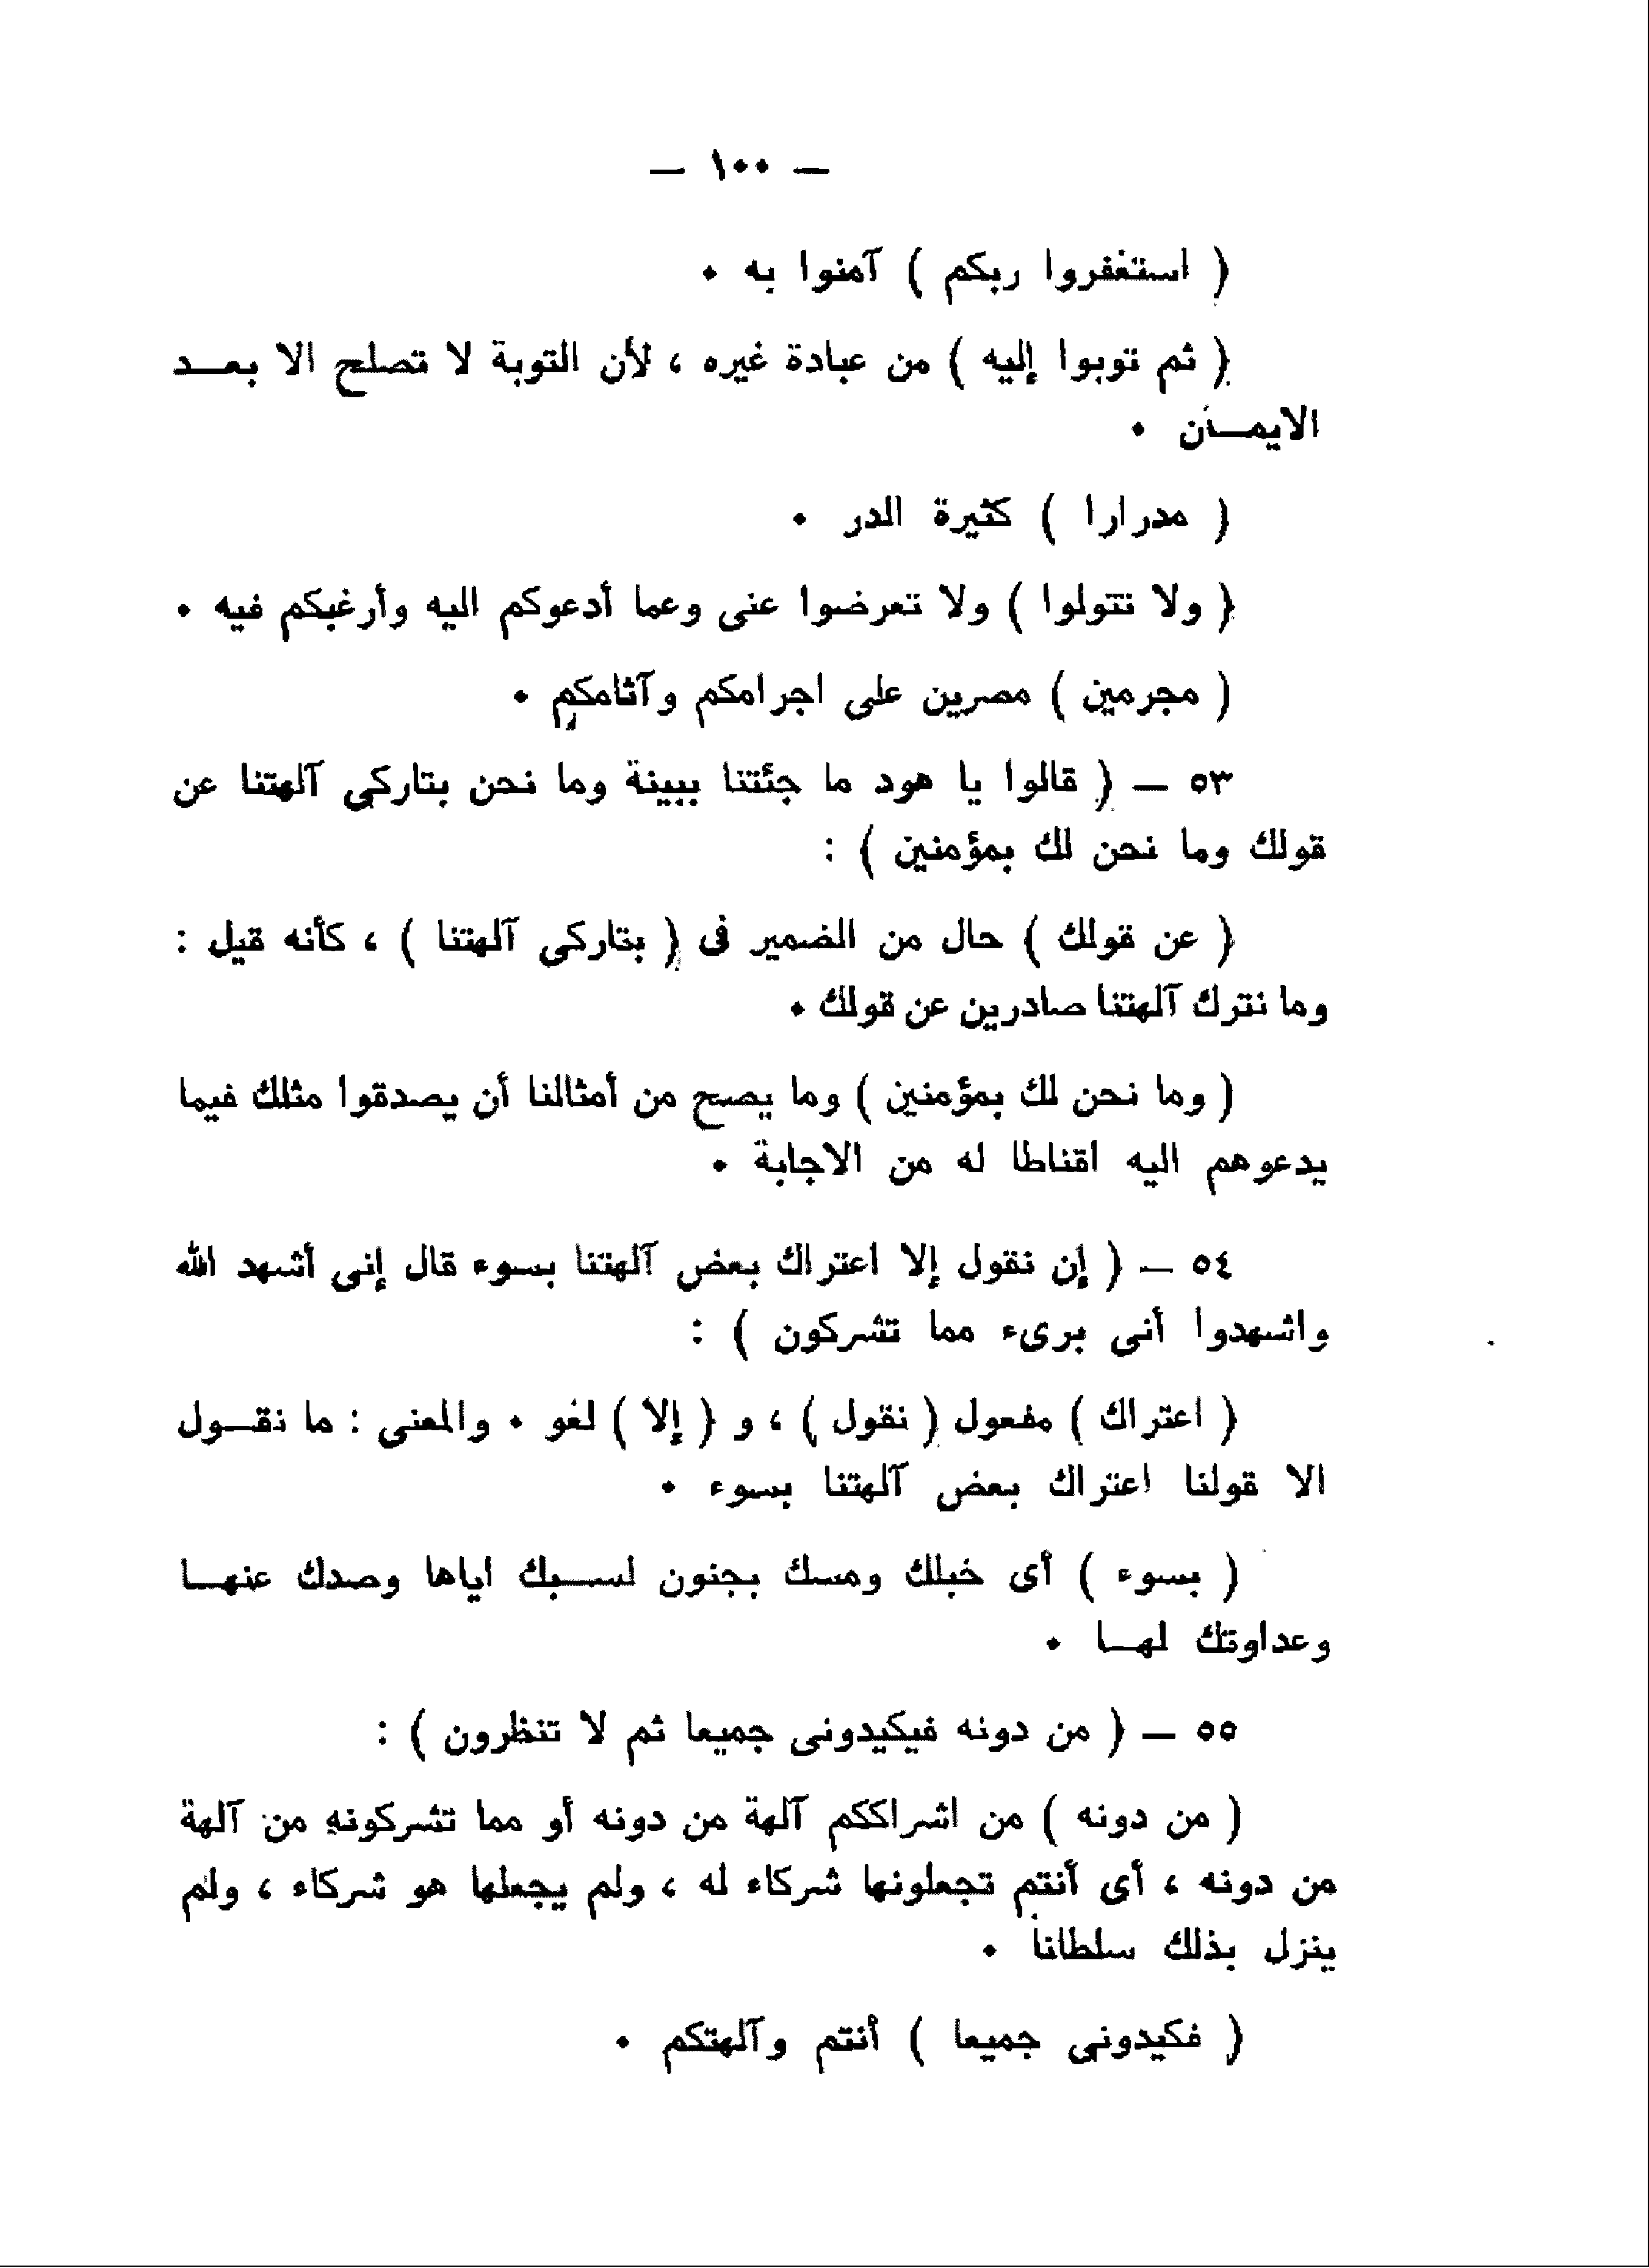 — ١٠٠ —
( استغفروا ربكم ) آمنوا به ٠
( ثم توبوا إليه ) من عبادة غيره ، لأن التوبة لا تصلح الا بعـــد
الايمـــان ٠
( مدرارا ) كثيرة الدر ٠
( ولا تتولوا ) ولا تعرضوا عنى وعما أدعوكم اليه وأرغبكم فيه ٠
( مجرمين ) مصرين على اجرامكم وآثامكم ٠
٥٣ — ( قالوا يا هود ما جئتنا ببينة وما نحن بتاركى آلهتنا عن
قولك وما نحن لك بمؤمنين ) :
( عن قولك ) حال من الضمير فى ( بتاركى آلهتنا ) ، كأنه قيل :
وما نترك آلهتنا صادرين عن قولك ٠
( وما نحن لك بمؤمنين ) وما يصح من أمثالنا أن يصدقوا مثلك فيما
يدعوهم اليه اقناطا له من الاجابة ٠
٥٤ — ( إن نقول إلا اعتراك بعض آلهتنا بسوء قال إنى أشهد الله
واشهدوا أنى برىء مما تشركون ) :
( اعتراك ) مفعول ( نقول ) ، و ( إلا ) لغو ٠ والمعنى : ما نقـــول
الا قولنا اعتراك بعض آلهتنا بسوء ٠
( بسوء ) أى خبلك ومسك بجنون لســـبك اياها وصدك عنهـــا
وعداوتك لهـــا ٠
٥٥ — ( من دونه فيكيدونى جميعا ثم لا تنظرون ) :
( من دونه ) من اشراككم آلهة من دونه أو مما تشركونه من آلهة
من دونه ، أى أنتم تجعلونها شركاء له ، ولم يجعلها هو شركاء ، ولم
ينزل بذلك سلطانا ٠
( فكيدونى جميعا ) أنتم وآلهتكم ٠